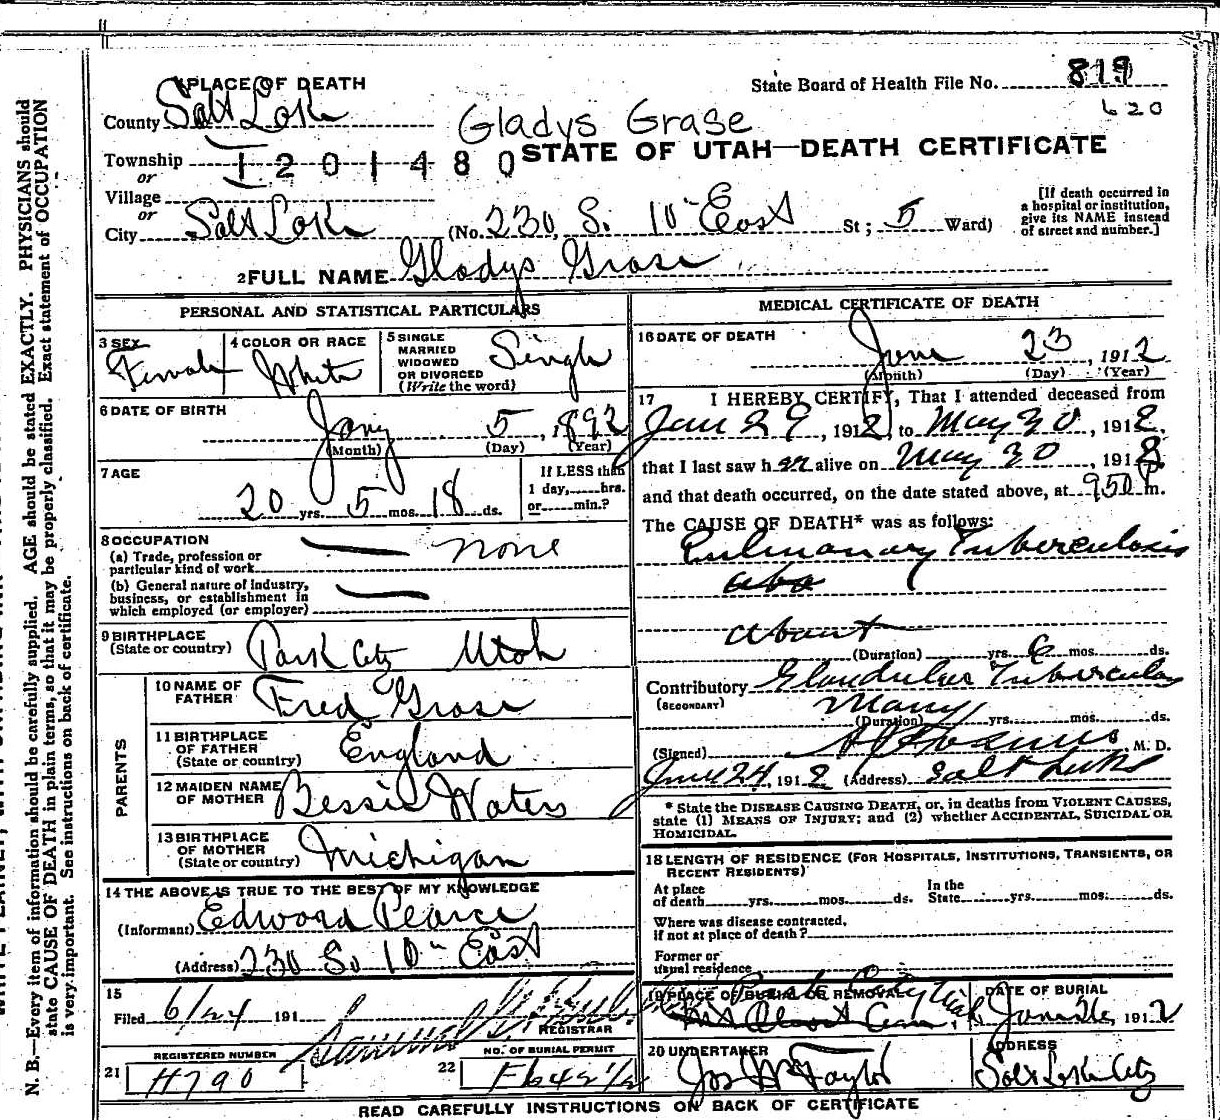 PLACE OF DEATH
State Board of Health File No. 819
620
County Salt Lake
Gladys Grase
STATE OF UTAH—DEATH CERTIFICATE
Township
or
1201480
Village
or
City Salt Lake (No. 230 S. 10" East St; 5 Ward)
[If death occurred in
a hospital or institution,
give its NAME instead
of street and number.]
2 FULL NAME Gladys Grase
PERSONAL AND STATISTICAL PARTICULARS
3 SEX Female
4 COLOR OR RACE White
5 SINGLE
MARRIED
WIDOWED
OR DIVORCED
(Write the word)
Single
6 DATE OF BIRTH
Jany 5, 1892
(Month) (Day) (Year)
7 AGE
20 yrs. 5 mos. 18 ds.
If LESS than
1 day, hrs.
or min.?
8 OCCUPATION
(a) Trade, profession or
particular kind of work
none
(b) General nature of industry,
business, or establishment in
which employed (or employer)
9 BIRTHPLACE
(State or country)
Park City Utah
PARENTS
10 NAME OF
FATHER
Fred Grase
11 BIRTHPLACE
OF FATHER
(State or country)
England
12 MAIDEN NAME
OF MOTHER
Bessie Waters
13 BIRTHPLACE
OF MOTHER
(State or country)
Michigan
14 THE ABOVE IS TRUE TO THE BEST OF MY KNOWLEDGE
(Informant) Edward Pearce
(Address) 230 So. 10" East
15
Filed 6/24 191
REGISTRAR
REGISTERED NUMBER
21 H790
NO. OF BURIAL PERMIT
22
MEDICAL CERTIFICATE OF DEATH
16 DATE OF DEATH
June 23, 1912
(Month) (Day) (Year)
17 I HEREBY CERTIFY, That I attended deceased from
Jan 29, 1912, to May 30, 1912.
that I last saw her alive on May 30, 1912
and that death occurred, on the date stated above, at 950 m.
The CAUSE OF DEATH* was as follows:
Pulmonary Tuberculosis
about
(Duration) yrs. 6 mos. ds.
Contributory Glandular Tuberculosis
(SECONDARY)
Many
(Duration) yrs. mos. ds.
(Signed) M. D.
June 24, 1912 (Address) Salt Lake
* State the DISEASE CAUSING DEATH, or, in deaths from VIOLENT CAUSES,
state (1) MEANS OF INJURY; and (2) whether ACCIDENTAL, SUICIDAL OR
HOMICIDAL.
18 LENGTH OF RESIDENCE (FOR HOSPITALS, INSTITUTIONS, TRANSIENTS, OR
RECENT RESIDENTS)
At place
of death yrs. mos. ds.
In the
State yrs. mos. ds.
Where was disease contracted,
if not at place of death?
Former or
usual residence
19 PLACE OF BURIAL OR REMOVAL
Park City Utah
DATE OF BURIAL
June 26, 1912
20 UNDERTAKER
Jos Wm Taylor
ADDRESS
Salt Lake City
READ CAREFULLY INSTRUCTIONS ON BACK OF CERTIFICATE
N. B.—Every item of information should be carefully supplied. AGE should be stated EXACTLY. PHYSICIANS should
state CAUSE OF DEATH in plain terms, so that it may be properly classified. Exact statement of OCCUPATION
is very important. See instructions on back of certificate.